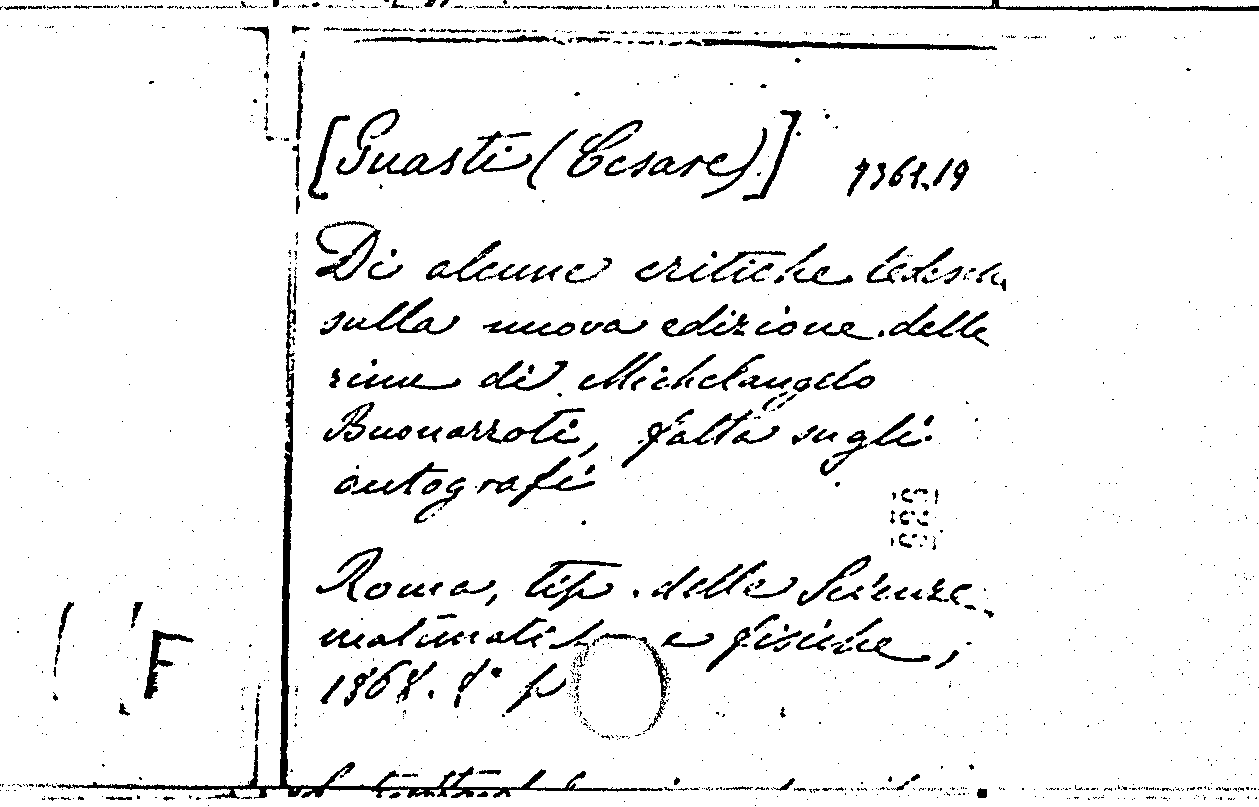 [Guasti (Cesare)] 7361.19
Di alcune critiche tedesche
sulla nuova edizione delle
rime di Michelangelo
Buonarroti, fatta sugli
autografi
Roma, tip. delle Scienze
matematiche e fisiche,
1868. 8° p
F